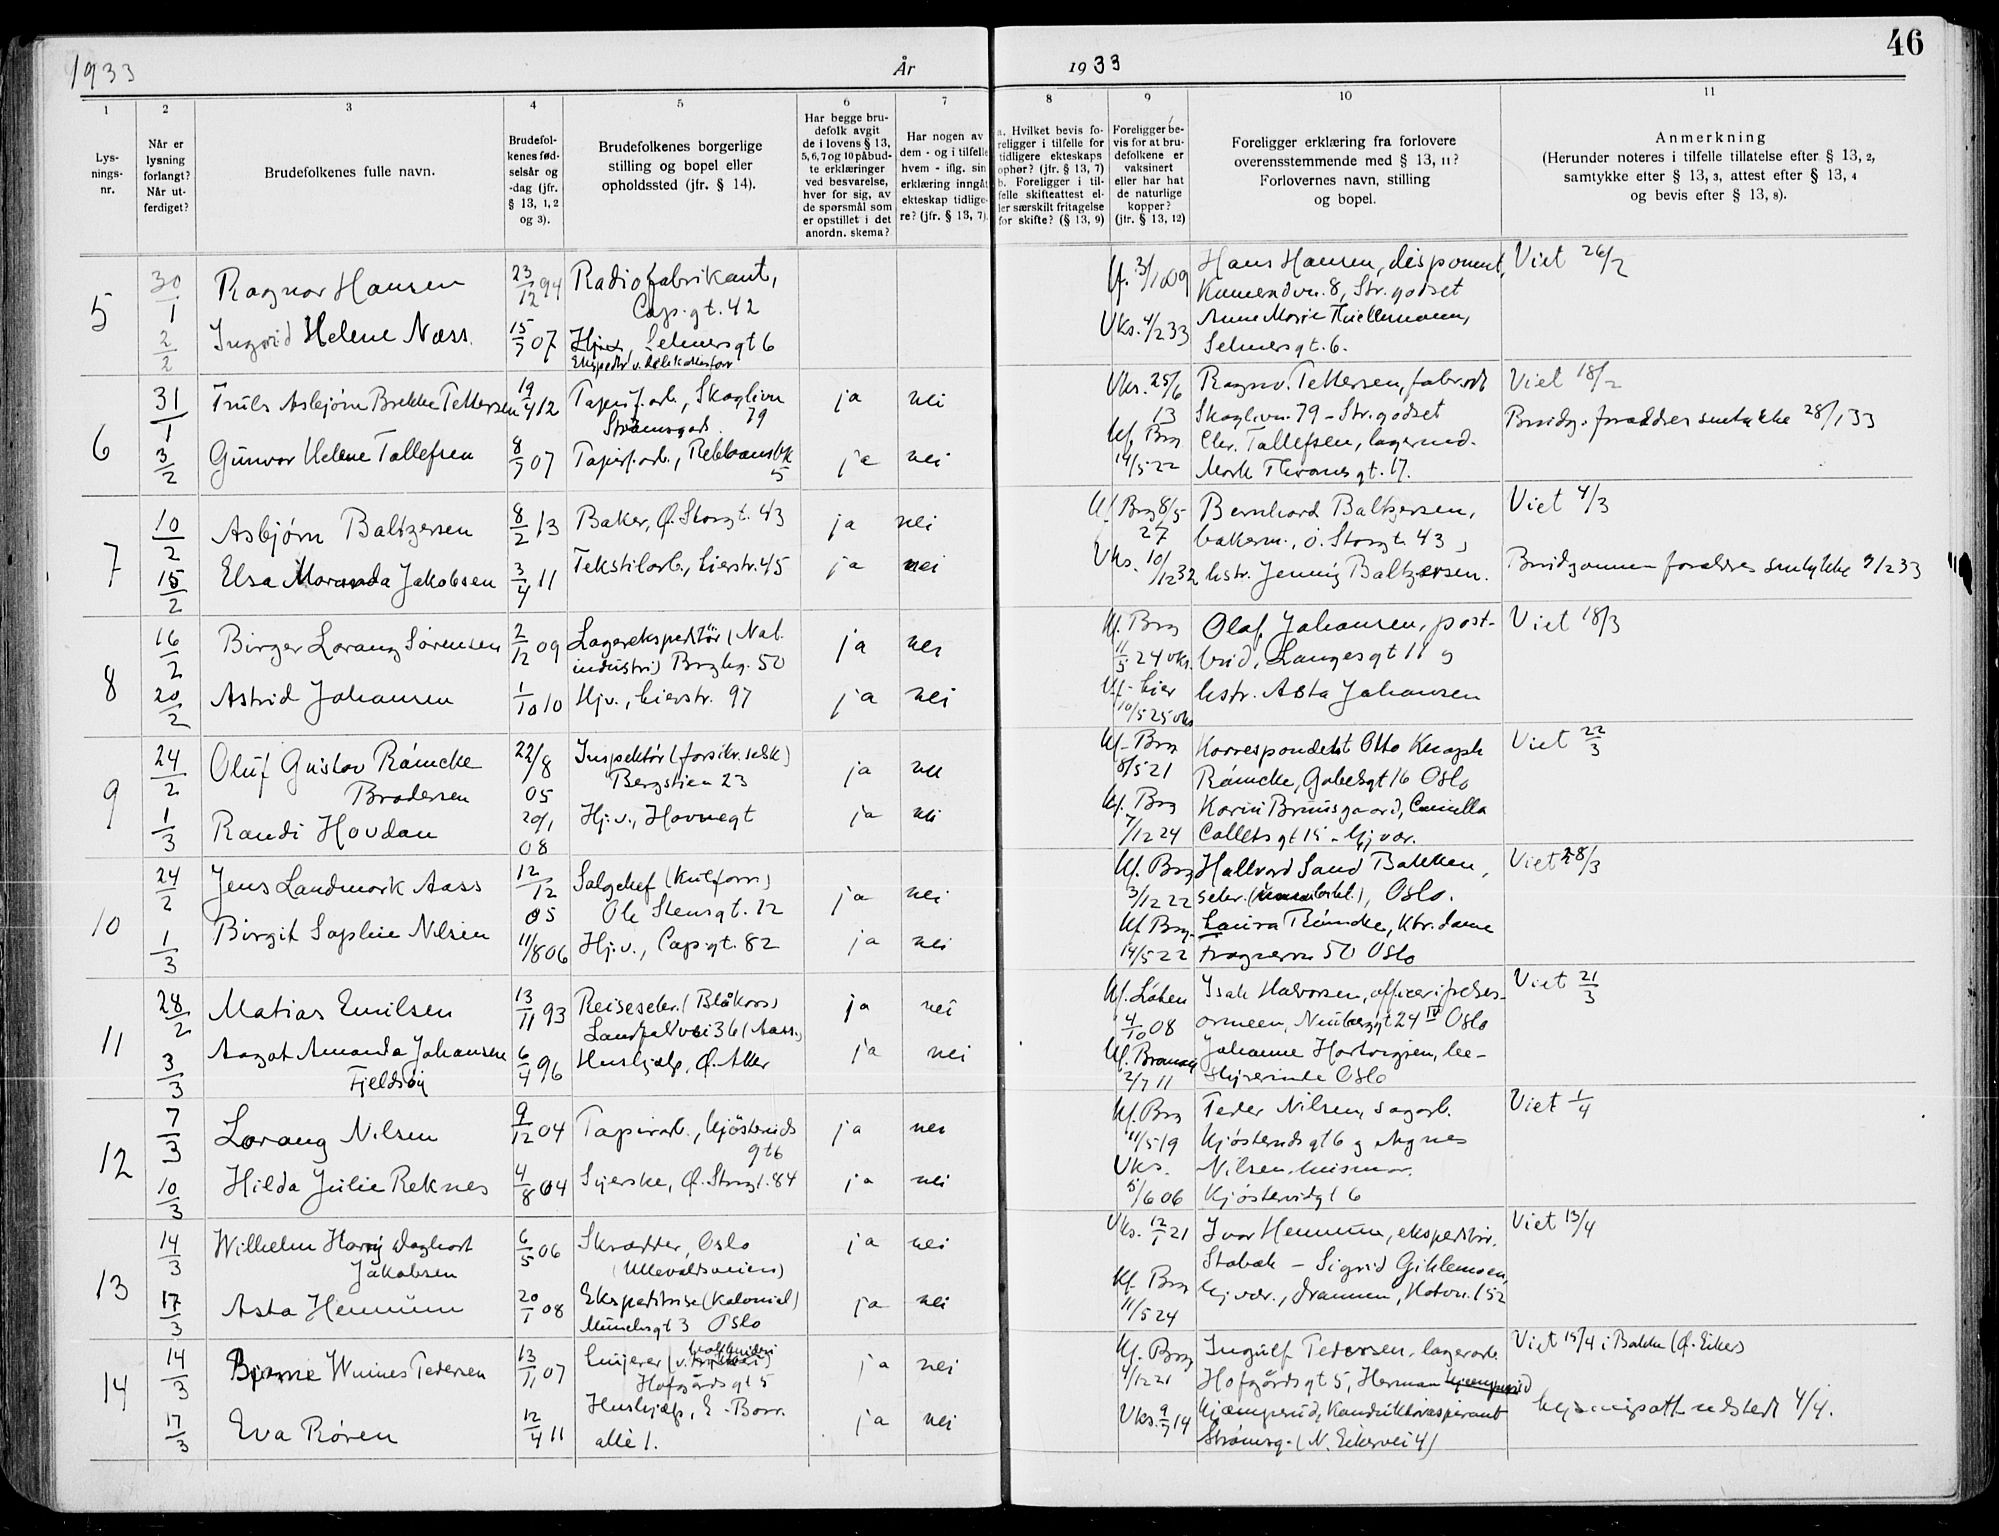 1933
År
1933
46
1
2
3
4
5
6
7
8
9
10
11
Lys-
nings-
nr.
Når er
lysning
forlangt?
Når ut-
ferdiget?
Brudefolkenes fulle navn.
Brudefol-
kenes fød-
selsår og
-dag (jfr.
§ 13, 1, 2
og 3).
Brudefolkenes borgerlige
stilling og bopel eller
opholdssted (jfr. § 14).
Har begge bru-
defolk avgit
de i lovens § 13,
5, 6, 7 og 10 påbud-
te erklæringer
ved besvarelse,
hver for sig, av
de spørsmål som
er opstillet i det
anordn. skema?
Har nogen av
dem - og i tilfelle
hvem - iflg. sin
erklæring inngått
ekteskap tidlige-
re? (jfr. § 13, 7).
a. Hvilket bevis fo-
religger i tilfelle for
tidligere ekteskaps
ophør? (jfr. § 13, 7)
b. Foreligger i til-
felle skifteattest el-
ler særskilt fritagelse
for skifte? (§ 13, 9)
Foreligger be-
vis for at bru-
defolkene er
vaksinert
eller har hat
de naturlige
kopper?
(jfr. § 13, 12)
Foreligger erklæring fra forlovere
overensstemmende med § 13, 11?
Forlovernes navn, stilling
og bopel.
Anmerkning
(Herunder noteres i tilfelle tillatelse efter § 13, 2,
samtykke efter § 13, 3, attest efter § 13, 4
og bevis efter § 13, 8).
5
30/1
Ragnar Hansen
23/12 94
Radiofabrikant,
Cap.gt. 42
3/10 09
Hans Hansen, disponent,
8, Str.godset
Viet 26/2
2/2
Ingrid Helene Næss.
15/7 07
Selmersgt 6
Vks. 4/2 33
Anne Marie Thiellemann,
Selmersgt. 6.
6
31/1
Truls Asbjørn Brekke Pettersen
19/4 12
Papirf.arb., Skoglivn
79
Strømsgods.
ja
nei
Vks. 25/6
13
Ragnv. Pettersen, fabr.arb
Skoglivn. 79 - Str.godset
Viet 18/2
Brudg. forældres samtykke 28/1 33
3/2
Gunvor Helene Tollefsen
8/7 07
Papirf.arb., Rebbansbk
5
ja
nei
Kf. Brg
14/5 22
Chr. Tollefsen, lagermd.
Mark Thranesgt. 17.
7
10/2
Asbjørn Baltzersen
8/2 13
Baker, Ø. Storgt. 43
ja
nei
Kf Brg 8/5
27
Bernhard Baltzersen,
bakerm., ø. Storgt. 43,
Viet 4/3
15/2
Elsa Maranda Jakobsen
3/4 11
Tekstilarb., Lierstr. 45
ja
nei
Vks. 10/12 32
hstr. Jenny Baltzersen.
Brudgommens forældres samtykke 9/2 33
8
16/2
Birger Lorang Sørensen
2/12 09
Lagerekspeditör (Nat.
industri) Brghg. 50
ja
nei
Kf. Brg
11/5 24 vks.
Olaf Johansen, post-
bud, Langesgt 11 g
Viet 18/3
20/2
Astrid Johansen
1/10 10
Hj.v., Lierstr. 97
ja
nei
Kf. Lier
10/5 25 vks
hstr. Asta Johansen
9
24/2
Oluf Gustav Rámcke
Brodersen
22/8
05
Inspektör (forsikr.selsk)
Bergstien 23
ja
nei
Kf. Brg
8/5 21
Korrespondent Otto Knoph
Rámcke, Gabelsgt 16 Oslo
Viet 22/3
1/3
Randi Hovdan
20/1
08
Hj.v., Havnegt
ja
nei
Kf. Brg
7/12 24
Karin Bruusgaard, Camilla
Colletsgt 15 - hj.vær.
10
24/2
Jens Landmark Aass
12/12
05
Salgchef (Kulforr.)
Ole Stensgt. 22
ja
nei
Kf. Brg
3/12 22
Hallvard Sand Bakken,
sekr. Oslo.
Viet 28/3
1/3
Birgit Sophie Nilsen
11/8 06
Hj.v., Capgt. 82
ja
nei
Kf. Brg.
14/5 22
Laura Rámcke, Ktr.dame
Frognerv. 50 Oslo
11
28/2
Matias Emilsen
13/11 93
Reisesekr. (Blåkors)
Landfaldvei 36 (Aass)
ja
nei
Kf. Löten
4/10 08
Isak Halvorsen, officer i frelses-
armeen, Oslo
Viet 21/3
3/3
Aagot Amanda Johansen
Fjeldsöy
6/4 96
Hushjælp, Ø. Aker
ja
nei
2/7 11
Johanne Hartvigsen, be-
styrerinde Oslo
12
7/3
Lorang Nilsen
9/12 04
Papirarb., Kjösteruds
gt 6
ja
nei
Kf. Brg
11/5 19
Peder Nilsen, sagarb.
Kjøsterudsgt 6 g Agnes
Viet 1/4
10/3
Hilda Julie Reknes
4/8 04
Syerske, Ø. Storgt. 84
ja
nei
Vks.
5/6 06
Nilsen husmor.
Kjøsterudgt 6
13
14/3
Wilhelm Harry Daghart
Jakobsen
6/5 06
Skrædder, Oslo
(Ullevaldsveien)
ja
nei
Vks. 12/1 21
Ivar Hennum, ekspeditør.
Stabæk - Sigrid Gihlemoen,
Viet 13/4
17/3
Asta Hennum
20/1 08
Ekspeditrise (Kolonial)
Munchsgt 3 Oslo
ja
nei
Kf. Brg
11/5 24
hj.vær., Drammen, Hotvn. 152
14
14/3
Bjarne Winnes Pedersen
13/11 07
Hofgårdsgt 5
ja
nei
Kf. Brg
4/12 21
Ingulf Pedersen, lagerarb.
Hofgårdsgt 5, Herman
Viet 15/4 i Bakke (Ø. Eiker)
17/3
Eva Røren
12/4 11
Hushjælp, E. Borr.
allè 1.
ja
nei
Vks. 9/7 14
Kjæmperud, Konduktöraspirant
Strömsg. (N. Eikervei 4)
Lysningsatt. utstedt 4/4.